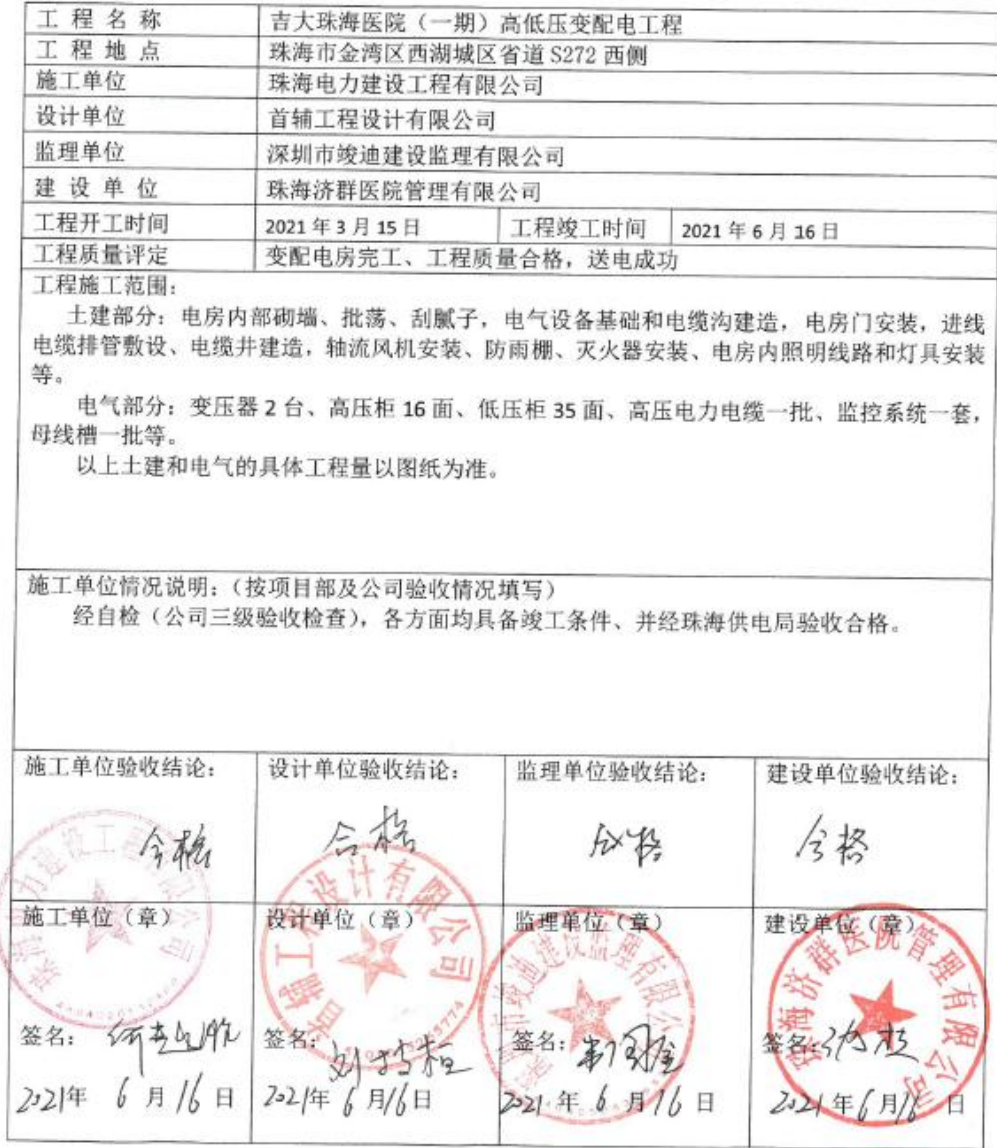 工程名称 吉大珠海医院（一期）高低压变配电工程
工程地点 珠海市金湾区西湖城区省道 S272 西侧
施工单位 珠海电力建设工程有限公司
设计单位 首辅工程设计有限公司
监理单位 深圳市竣迪建设监理有限公司
建设单位 珠海济群医院管理有限公司
工程开工时间 2021 年 3 月 15 日 工程竣工时间 2021 年 6 月 16 日
工程质量评定 变配电房完工、工程质量合格，送电成功
工程施工范围：
土建部分：电房内部砌墙、批荡、刮腻子，电气设备基础和电缆沟建造，电房门安装，进线
电缆排管敷设、电缆井建造，轴流风机安装、防雨棚、灭火器安装、电房内照明线路和灯具安装
等。
电气部分：变压器 2 台、高压柜 16 面、低压柜 35 面、高压电力电缆一批、监控系统一套，
母线槽一批等。
以上土建和电气的具体工程量以图纸为准。
施工单位情况说明：（按项目部及公司验收情况填写）
经自检（公司三级验收检查），各方面均具备竣工条件、并经珠海供电局验收合格。
施工单位验收结论： 设计单位验收结论： 监理单位验收结论： 建设单位验收结论：
合格 合格 合格 合格
施工单位（章） 设计单位（章） 监理单位（章） 建设单位（章）
珠海电力建设工程有限公司 首辅工程设计有限公司 深圳市竣迪建设监理有限公司 珠海济群医院管理有限公司
签名： 签名： 签名： 签名：
2021年 6 月 16 日 2021年 6 月 16 日 2021 年 6 月 16 日 2021 年 6 月 16 日